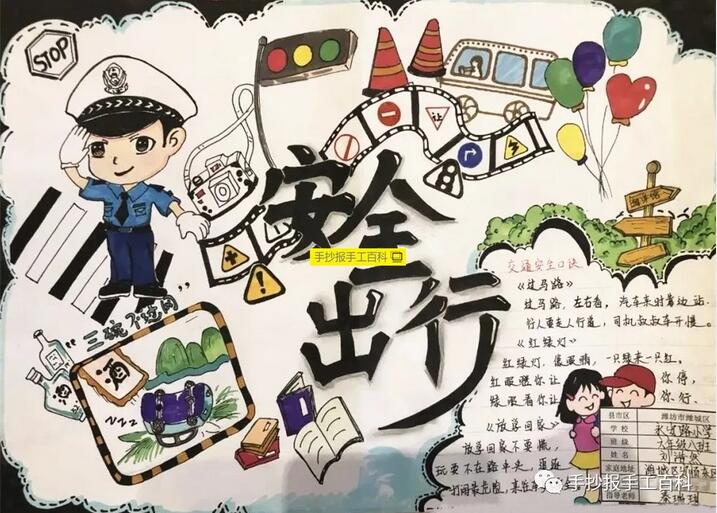 STOP
让
安全
出行
手抄报手工百科
三碗不过岗
酒
酒
交通安全口诀
《过马路》
过马路,左右看,汽车来时靠边站.
行人要走人行道,司机叔叔车开慢。
《红绿灯》
红绿灯,像眼睛,一只绿来一只红。
红眼睛你让 你停,
绿眼看你让 你行.
《放学回家》
放学回家不要慌,
玩耍不在路中央,
县市区 潍坊市潍城区
学校 小学
班级 六年级八班
姓名 刘
家庭地址 潍城区
指导老师 秦
手抄报手工百科